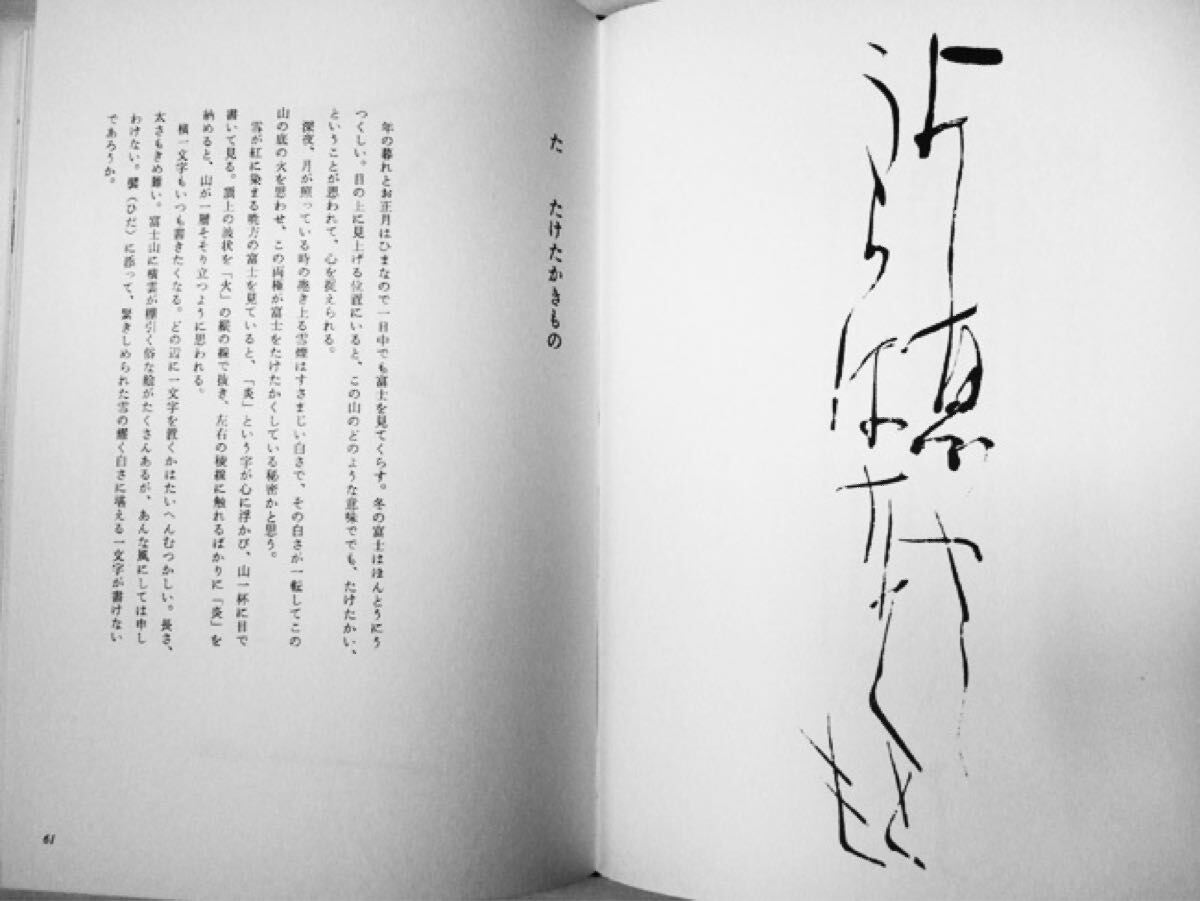 た　たけたかきもの
年の暮れとお正月はひまなので一日中でも富士を見てくらす。冬の富士はほんとうにう
つくしい。目の上に見上げる位置にいると、この山のどのような意味ででも、たけたかい、
ということが思われて、心を捉えられる。
深夜、月が照っている時の捲き上る雪煙はすさまじい白さで、その白さが一転してこの
山の底の火を思わせ、この両極が富士をたけたかくしている秘密かと思う。
雪が紅に染まる暁方の富士を見ていると、「炎」という字が心に浮かび、山一杯に目で
書いて見る。頂上の波状を「火」の縦の線で抜き、左右の稜線に触れるばかりに「炎」を
納めると、山が一層そそり立つように思われる。
横一文字もいつも書きたくなる。どの辺に一文字を置くかはたいへんむつかしい。長さ、
太さもきめ難い。富士山に横雲が棚引く俗な絵がたくさんあるが、あんな風にしては申し
わけない。襞（ひだ）に添って、緊きしめられた雪の耀く白さに堪える一文字が書けない
であろうか。
61